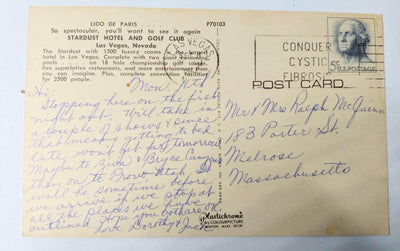 LIDO DE PARIS
P70103
So spectacular, you'll want to see it again
STARDUST HOTEL AND GOLF CLUB
Las Vegas, Nevada
The Stardust with 1500 luxury rooms
hotel in Las Vegas. Complete with two giant swimming
pools 18 hole championship golf course.
Five superlative restaurants, and more entertainment than
you can imagine. Plus, complete convention facilities
for 2500 people.
LAS VEGAS
CONQUER
CYSTIC
FIBROSIS
5¢
U.S. POSTAGE
POST CARD
Mon.
Hi!
Stopping here on the first
night out. Will take in
a couple of shows & since
that means getting to bed
late, won't get far tomorrow.
Maybe to Zion & Bryce Canyon
then on to Provo Utah. It
will be sometime before
we arrive if we stop at
all the places we have
outlined. Hope you both are OK.
Love Dorothy & Jack
Mr & Mrs Ralph McGuinn
183 Porter St.
Melrose
Massachusetts
Mastichrome
By COLOURPICTURE
BOSTON, MASS. 02130